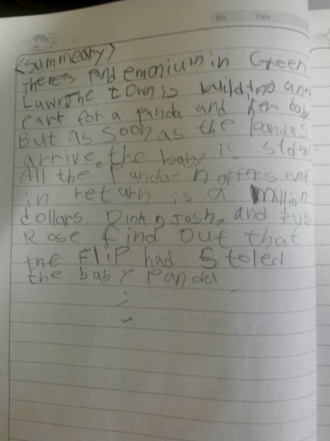 No. Date
<Summeary>
Theres Pandemonium in Green
Lawn The town is building and
Park for a Panda and her baby
But as soon as the Pandas
arrive, the baby is stoln
All the Panda-napters want
in return is a Million
dollars. Dink, Josh, and
Rose find out that
the FliP had Stoled
the baby Panda